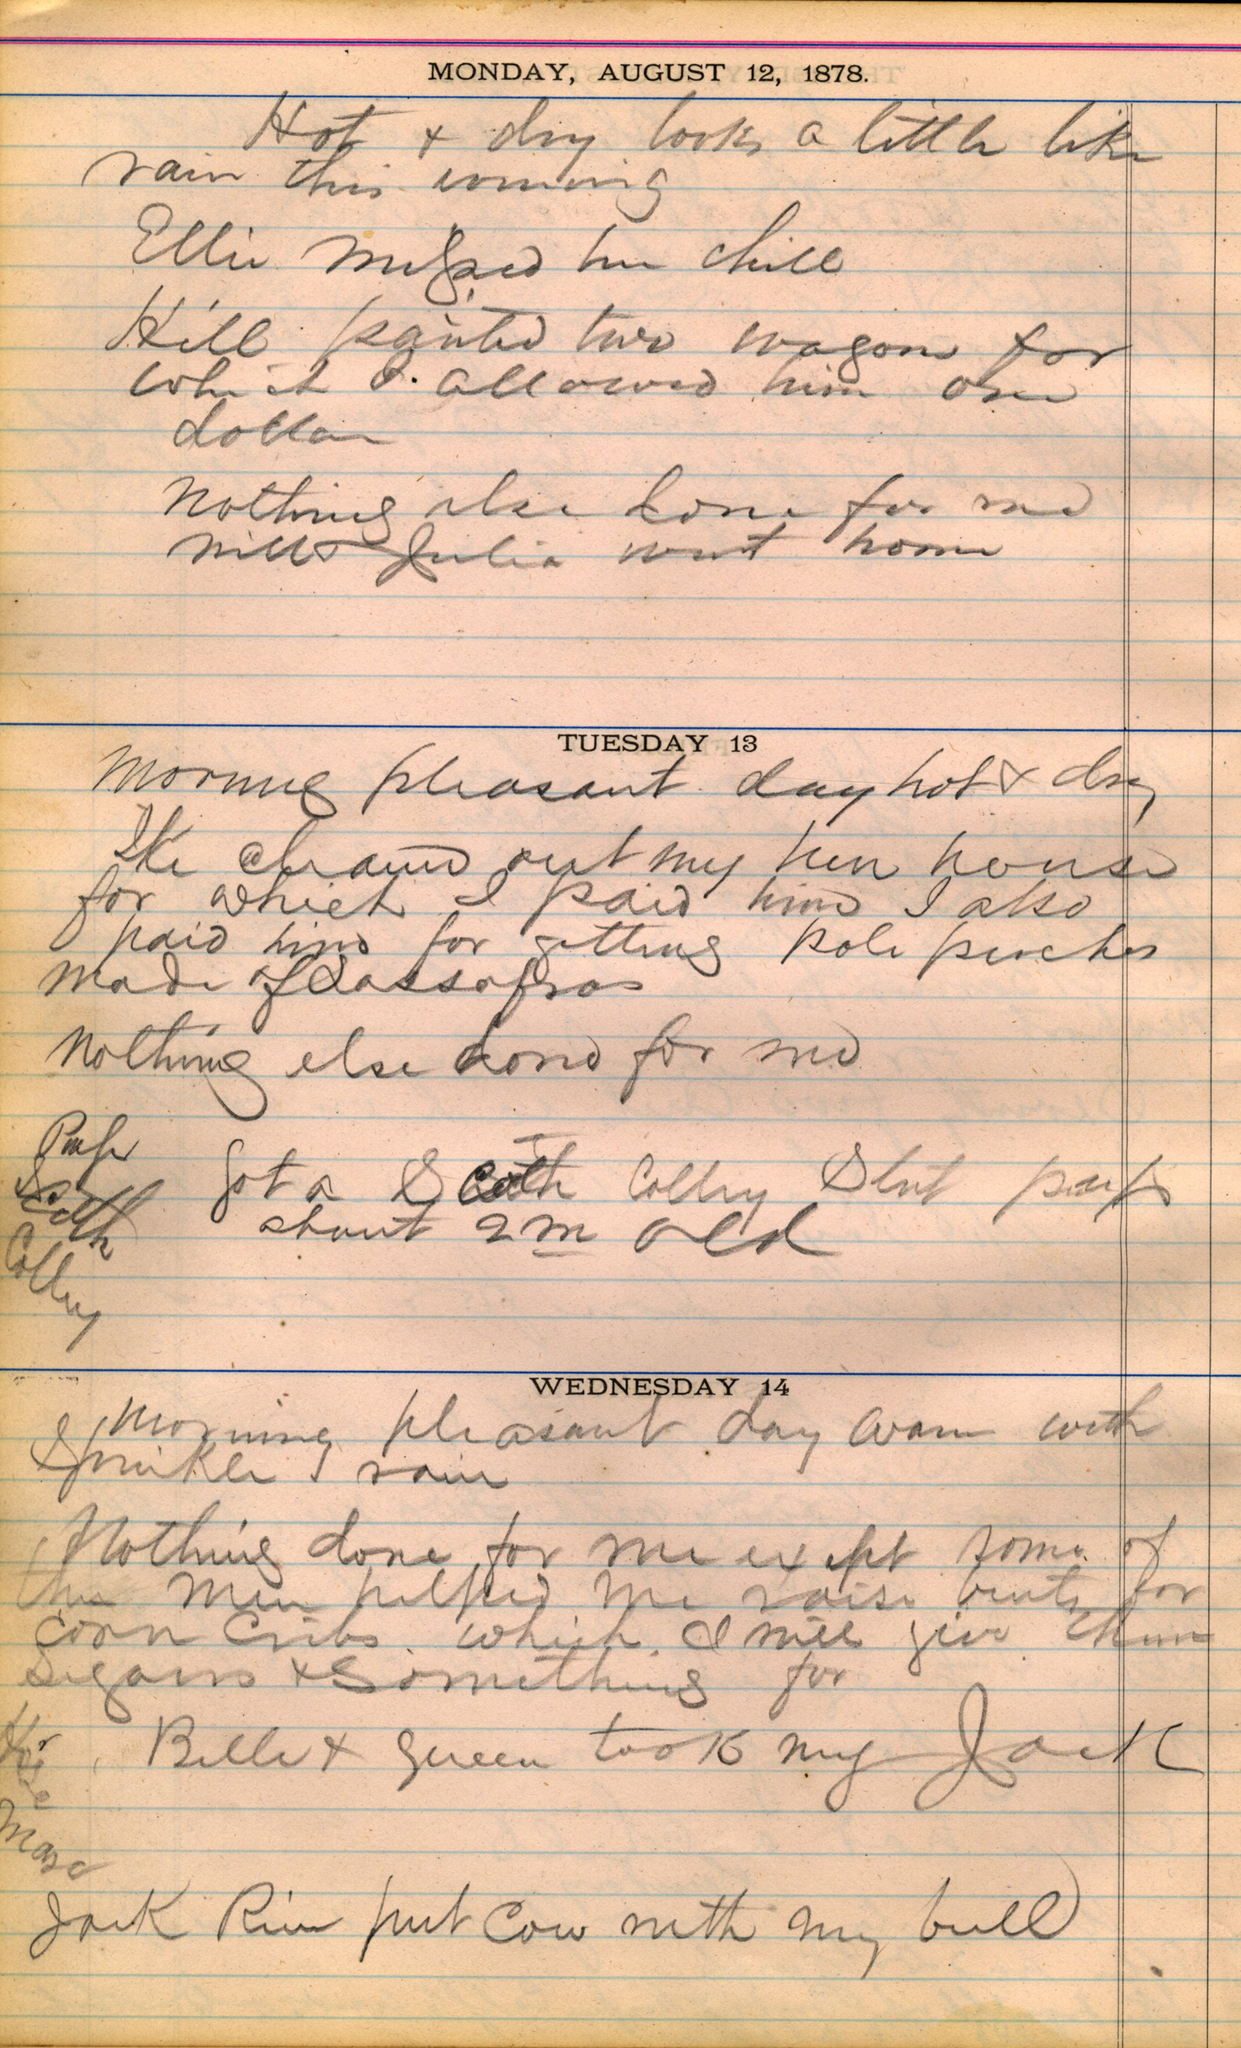 MONDAY, AUGUST 12, 1878.
Hot & dry looks a little like
rain this evening
Ellie missed her chill
Hill painted two wagons for
which I allowed him one
dollar
Nothing else done for me
Julia went home
TUESDAY 13
Morning pleasant day hot & dry
Ike cleaned out my hen house
for which I paid him I also
paid him for getting pole perches
made of Sassafras
Nothing else done for me
Pup
Scotch
Colley
Got a Scotch Colley Slut pup
about 2 m old
WEDNESDAY 14
Morning pleasant day warm with
Sprinkle of rain
Nothing done for me except some of
the men helped me raise bents for
Corn Cribs which I will give them
Segars & Something for
Horse
Mare
Belle & Green took my Jack
Jack put Cow with my bull